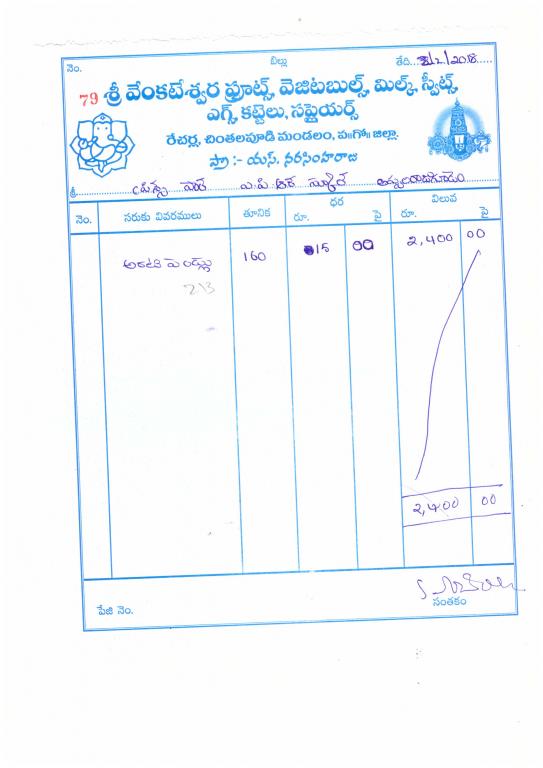 నెం. బిల్లు తేది. /2/2018
79 శ్రీ వేంకటేశ్వర ఫ్రూట్స్, వెజిటబుల్స్, మిల్క్, స్వీట్స్,
ఎగ్స్, కట్టెలు, సప్లైయర్స్
రేచర్ల, చింతలపూడి మండలం, ప॥గో॥ జిల్లా.
ప్రొ :- యస్. నరసింహరాజు
శ్రీ ఎ.పి.ఆర్ స్కూల్
నెం. సరుకు వివరములు తూనిక ధర విలువ
రూ. పై రూ. పై
అరటి పండ్లు 160 15 00 2,400 00
213
2,400 00
పేజి నెం. సంతకం